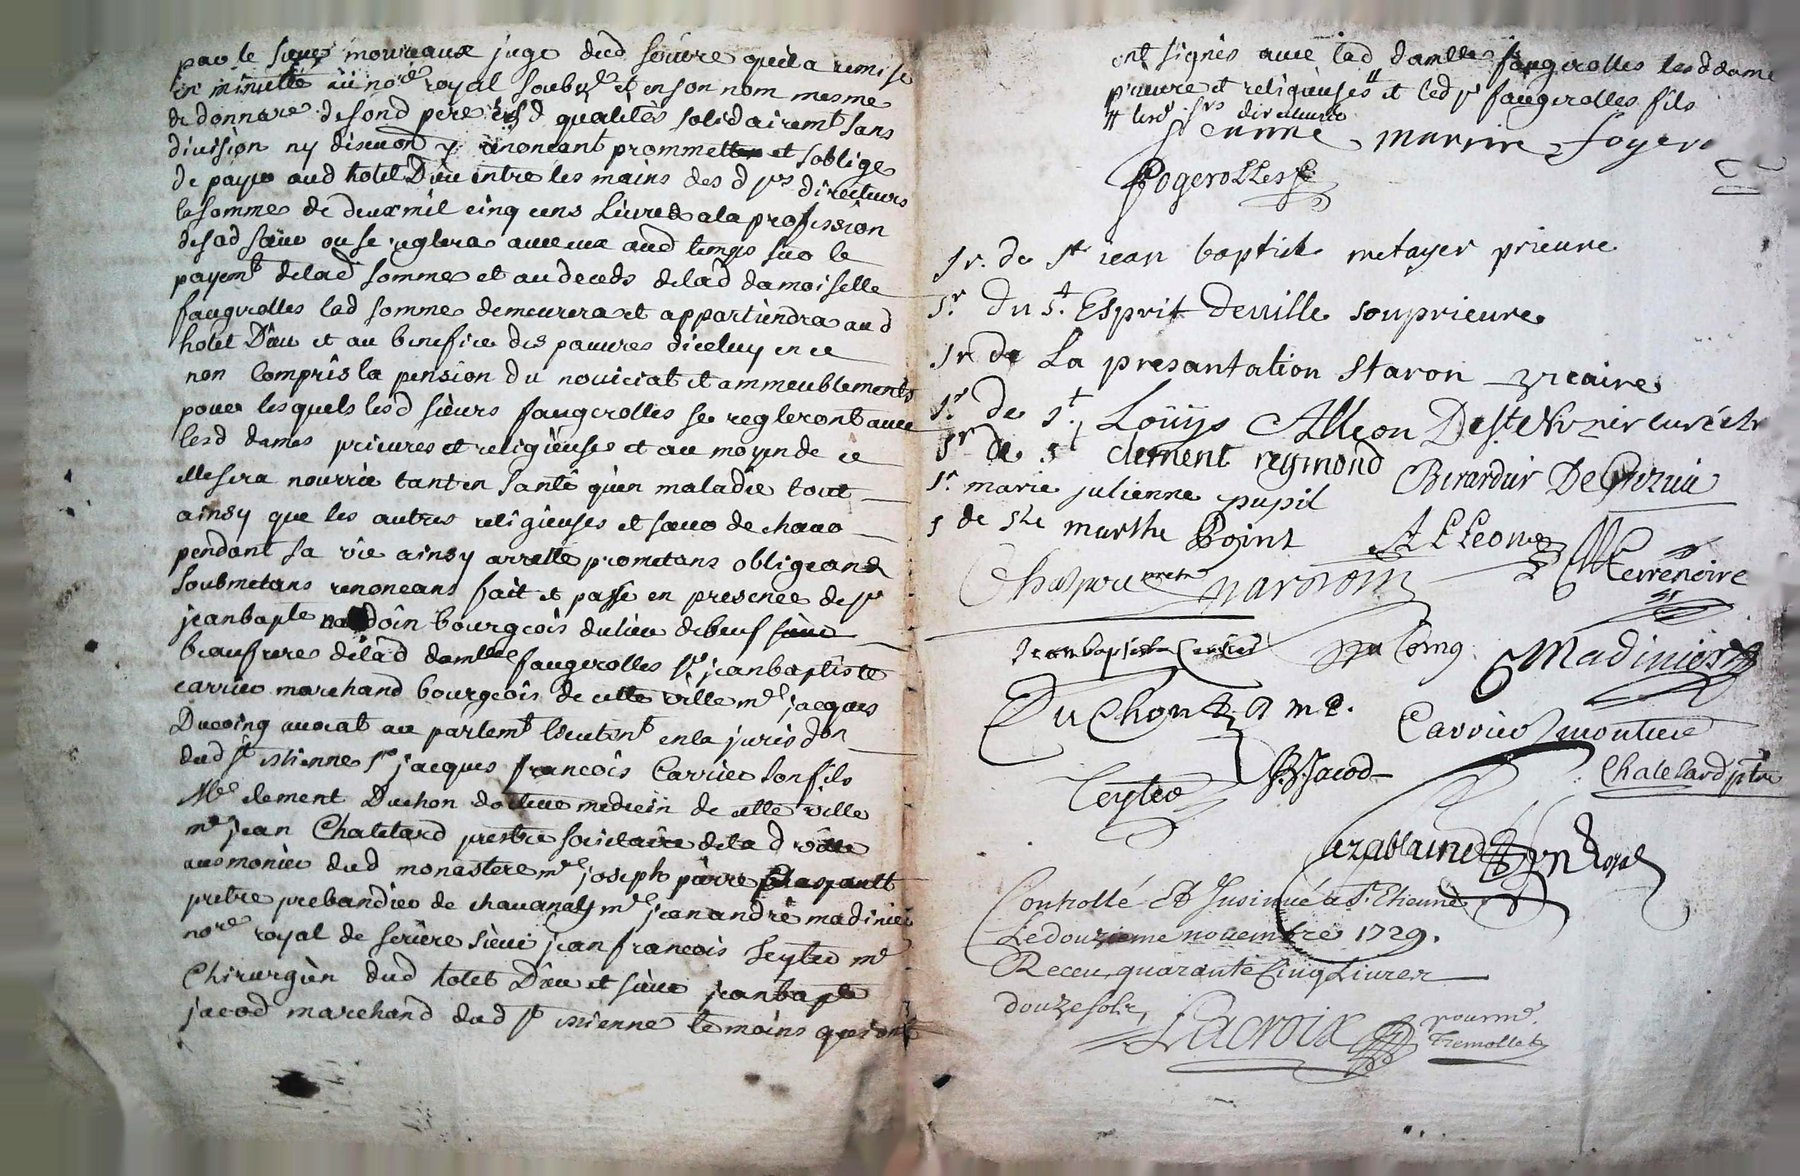 par le sieur moureaux juge dud serure quil a remise
en minutte au no.re royal soub.né et en son nom mesme
de donnare de sond pere esd qualités solidairemt sans
division ny discution y renoncant promettent et soblige
de payer aud hotel Dieu entre les mains des d srs directeurs
la somme de deux mil cinq cens Livres a la profession
desad sœur ou se reglera avec eux aud temps sur le
payemt delad somme et au deceds delad damoiselle
faugerolles lad somme demeurera et appartiendra aud
hotel Dieu et au benefice des pauvres diceluy en ce
non Compris la pension du noviciat et ammeublements
pour lesquels lesd sieurs faugerolles se regleront avec
lesd dames prieures et religieuses et au moyen de ce
elle sera nourrie tant en santé qu'en maladie tout
ainsy que les autres religieuses et sœur de chœur
pendant sa vie ainsy arrette prometans obligeans
soubmetans renoncans fait et passé en presence de sr
jeanbapte nardoin bourgeois du lieu de beuf
beaufrere delad damlle faugerolles sr jeanbaptiste
carrier marchand bourgeois de cette ville mr jacques
Ducoing avocat au parlemt lieutent en la jurisdon
dud st estienne sr jacques francois Carrier son fils
Me clement Duchon docteur medecin de cette ville
mr jean Chatelard prestre societaire delad ville
aumonier dud monastere mr joseph pierre Chaspault
pretre prebandier de chavanay mr jean andré madinier
no.re royal de serure sieur jean francois Teyter me
Chirurgien dud hotel Dieu et sieur jeanbapte
jacod marchand dud st estienne temoins qui ont
ont signés avec lad damlle faugerolles lesd dame
prieure et religieuses " et led sr faugerolles fils
" lesd srs directeurs
jeanne marie fogerolles
fogerolles fils
Sr. de St jean baptiste metayer prieure
Sr du St. Esprit Deville souprieure
Sr de La presantation Staron vicaire
Sr de St. Loüys Alleon
Sr de St clement reymond
Sr marie julienne pupil
S de Ste marthe Point
ALLeon
Terrenoire
nardoin
jean baptiste Carrier
Madinier
DuChon D. m.
Carrier
Teyter
J.B. Jacod
Chatelard ptre
Controllé Et Insinué a St. Etienne
Le douzieme novembre 1729.
Receu quarante Cinq Livres
douze sols
Lacroix
pour mr.
Tremollet